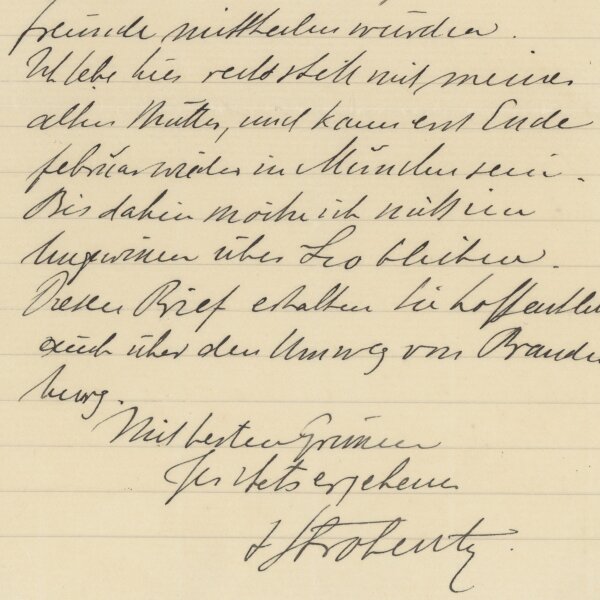 freunde mittheilen würden.
Ich lebe hier recht still mit meiner
alten Mutter, und kann erst Ende
februar wieder in München sein.
Bis dahin möchte ich nicht im
Ungewissen über Leo bleiben.
Diesen Brief erhalten Sie hoffentlich
auch über den Umweg von Branden
burg.
Mit besten Grüssen
Ihr stets ergebener
Strobentz.